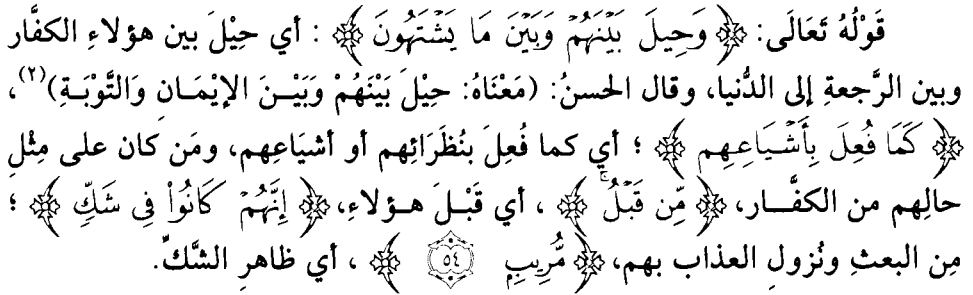 قَوْلُهُ تَعَالَى: ﴿ وَحِيلَ بَيْنَهُمْ وَبَيْنَ مَا يَشْتَهُونَ ﴾ : أي حِيْلَ بين هؤلاءِ الكفَّار
وبين الرَّجعةِ إلى الدُّنيا، وقال الحسنُ: (مَعْنَاهُ: حِيْلَ بَيْنَهُمْ وَبَيْـنَ الإِيْمَـانِ وَالتَّوْبَـةِ)(٢)،
﴿ كَمَا فُعِلَ بِأَشْيَاعِهِم ﴾ ؛ أي كما فُعِلَ بنُظَرَائِهم أو أشيَاعِهم، ومَن كان على مِثْلِ
حالِهم من الكفَّـــار، ﴿ مِّن قَبْلُ ۚ ﴾ ، أي قَبْـلَ هـؤلاءِ، ﴿ إِنَّهُمْ كَانُوا۟ فِى شَكٍّ ﴾ ؛
مِن البعثِ ونُزولِ العذاب بهم، ﴿ مُّرِيبٍۭ ٥٤ ﴾ ، أي ظاهرِ الشَّكِّ.